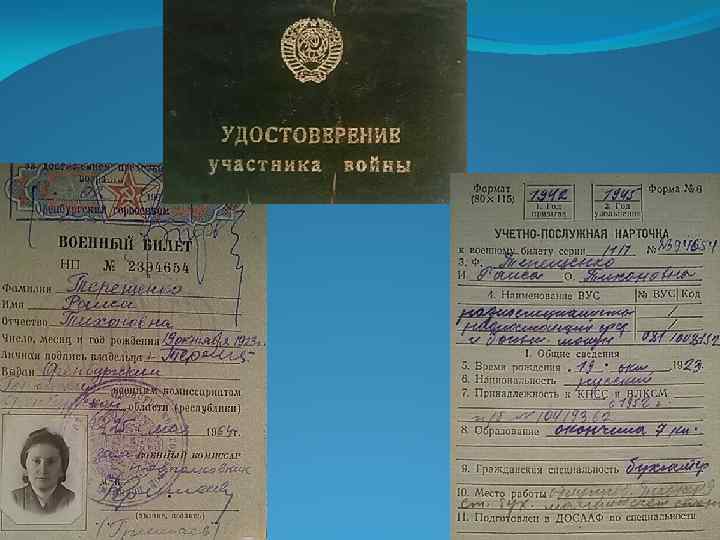 УДОСТОВЕРЕНИЕ
участника войны
Оренбургский горвоенком
ВОЕННЫЙ БИЛЕТ
НП № 2394654
Фамилия Терещенко
Имя Раиса
Отчество Тихоновна
Число, месяц и год рождения 19 октября 1923 г.
Личная подпись владельца
Выдан Оренбургским
военным комиссариатом
области (республики)
25 мая 1964 г.
ВОЕННЫЙ КОМИССАР
подполковник
(звание, подпись)
Формат (80 × 115)
1942
1. Год призыва
1945
2. Год увольнения
Форма № 6
УЧЕТНО-ПОСЛУЖНАЯ КАРТОЧКА
к военному билету серии НП № 2394654
3. Ф. Терещенко
И. Раиса О. Тихоновна
4. Наименование ВУС № ВУС Код
I. Общие сведения
5. Время рождения 19 окт 1923
6. Национальность русская
7. Принадлежность к КПСС и ВЛКСМ
с 1952 г.
8. Образование окончила 7 кл.
9. Гражданская специальность бухгалтер
10. Место работы
11. Подготовлен в ДОСААФ по специальности